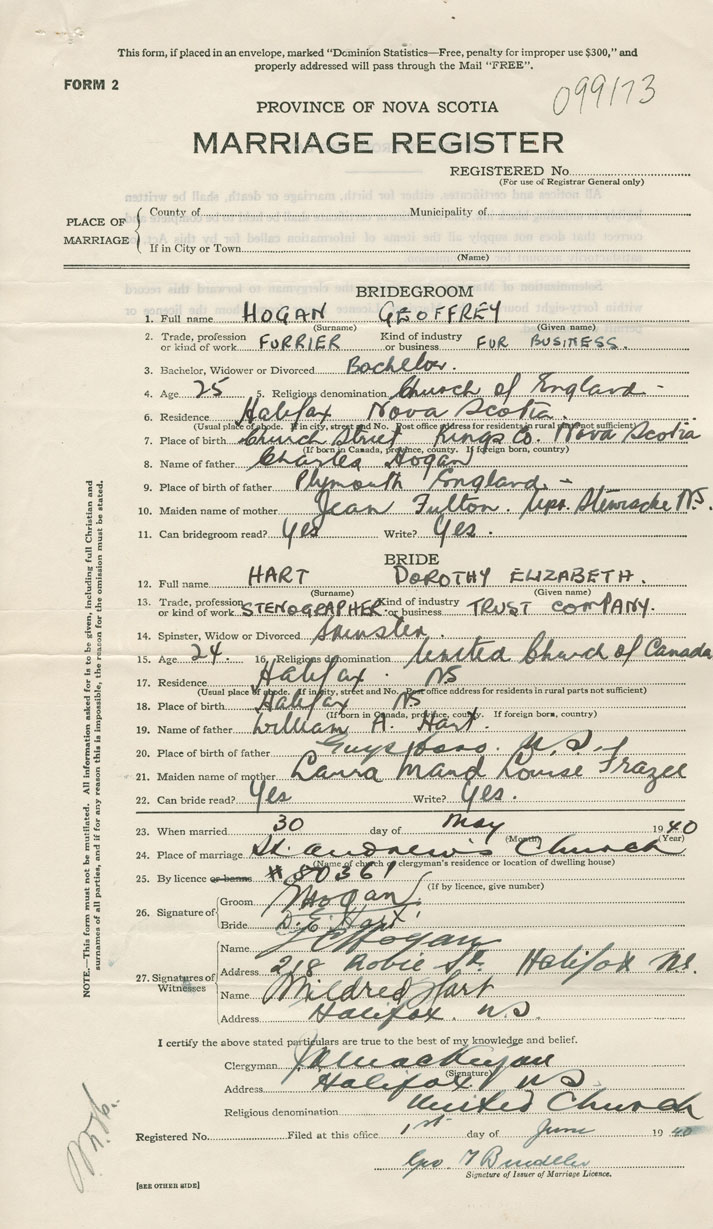 This form, if placed in an envelope, marked "Dominion Statistics—Free, penalty for improper use $300," and
properly addressed will pass through the Mail "FREE".
FORM 2
099173
PROVINCE OF NOVA SCOTIA
MARRIAGE REGISTER
REGISTERED No.
(For use of Registrar General only)
PLACE OF MARRIAGE
County of Municipality of
If in City or Town
(Name)
BRIDEGROOM
1. Full name HOGAN GEOFFREY
(Surname) (Given name)
2. Trade, profession or kind of work FURRIER Kind of industry or business FUR BUSINESS.
3. Bachelor, Widower or Divorced Bachelor.
4. Age 25 5. Religious denomination Church of England -
6. Residence Halifax Nova Scotia.
(Usual place of abode. If in city, street and No. Post office address for residents in rural parts not sufficient)
7. Place of birth Church Street Kings Co. Nova Scotia
(If born in Canada, province, county. If foreign born, country)
8. Name of father Charles Hogan
9. Place of birth of father Plymouth England. -
10. Maiden name of mother Jean Fulton. Upr. Stewiacke N.S.
11. Can bridegroom read? Yes Write? Yes.
BRIDE
12. Full name HART DOROTHY ELIZABETH.
(Surname) (Given name)
13. Trade, profession or kind of work STENOGRAPHER Kind of industry or business TRUST COMPANY.
14. Spinster, Widow or Divorced Spinster.
15. Age 24. 16. Religious denomination United Church of Canada
17. Residence Halifax. NS
(Usual place of abode. If in city, street and No. Post office address for residents in rural parts not sufficient)
18. Place of birth Halifax NS
(If born in Canada, province, county. If foreign born, country)
19. Name of father William A. Hart.
20. Place of birth of father Guysboro. N.S.
21. Maiden name of mother Laura Maud Louise Frazee
22. Can bride read? Yes Write? Yes.
23. When married 30 day of May 1940
(Month) (Year)
24. Place of marriage St. Andrew's Church
(Name of church or clergyman's residence or location of dwelling house)
25. By licence or banns #80361
(If by licence, give number)
26. Signature of
Groom Hogan
Bride D.E. Hart
27. Signatures of Witnesses
Name Hogan
Address 218 Robie St. Halifax N.S.
Name Mildred Hart
Address Halifax. N.S
I certify the above stated particulars are true to the best of my knowledge and belief.
Clergyman
(Signature)
Address Halifax N S
Religious denomination United Church
Registered No. Filed at this office 1st day of June 1940
Geo
Signature of Issuer of Marriage Licence.
[SEE OTHER SIDE]
NOTE.—This form must not be mutilated. All information asked for is to be given, including full Christian and
surnames of all parties, and if for any reason this is impossible, the reason for the omission must be stated.